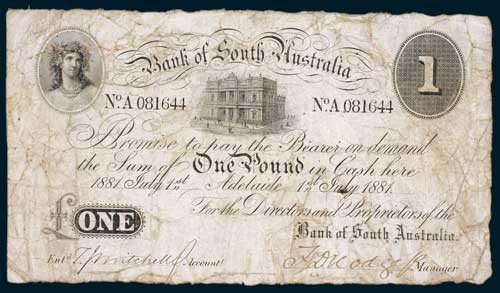 Bank of South Australia
1
No. A 081644 No. A 081644
Promise to pay the Bearer on demand
the Sum of One Pound in Cash here
1881 July 1st Adelaide 1st July 1881.
For the Directors and Proprietors of the
£ONE Bank of South Australia.
Entd. Accountt. Manager